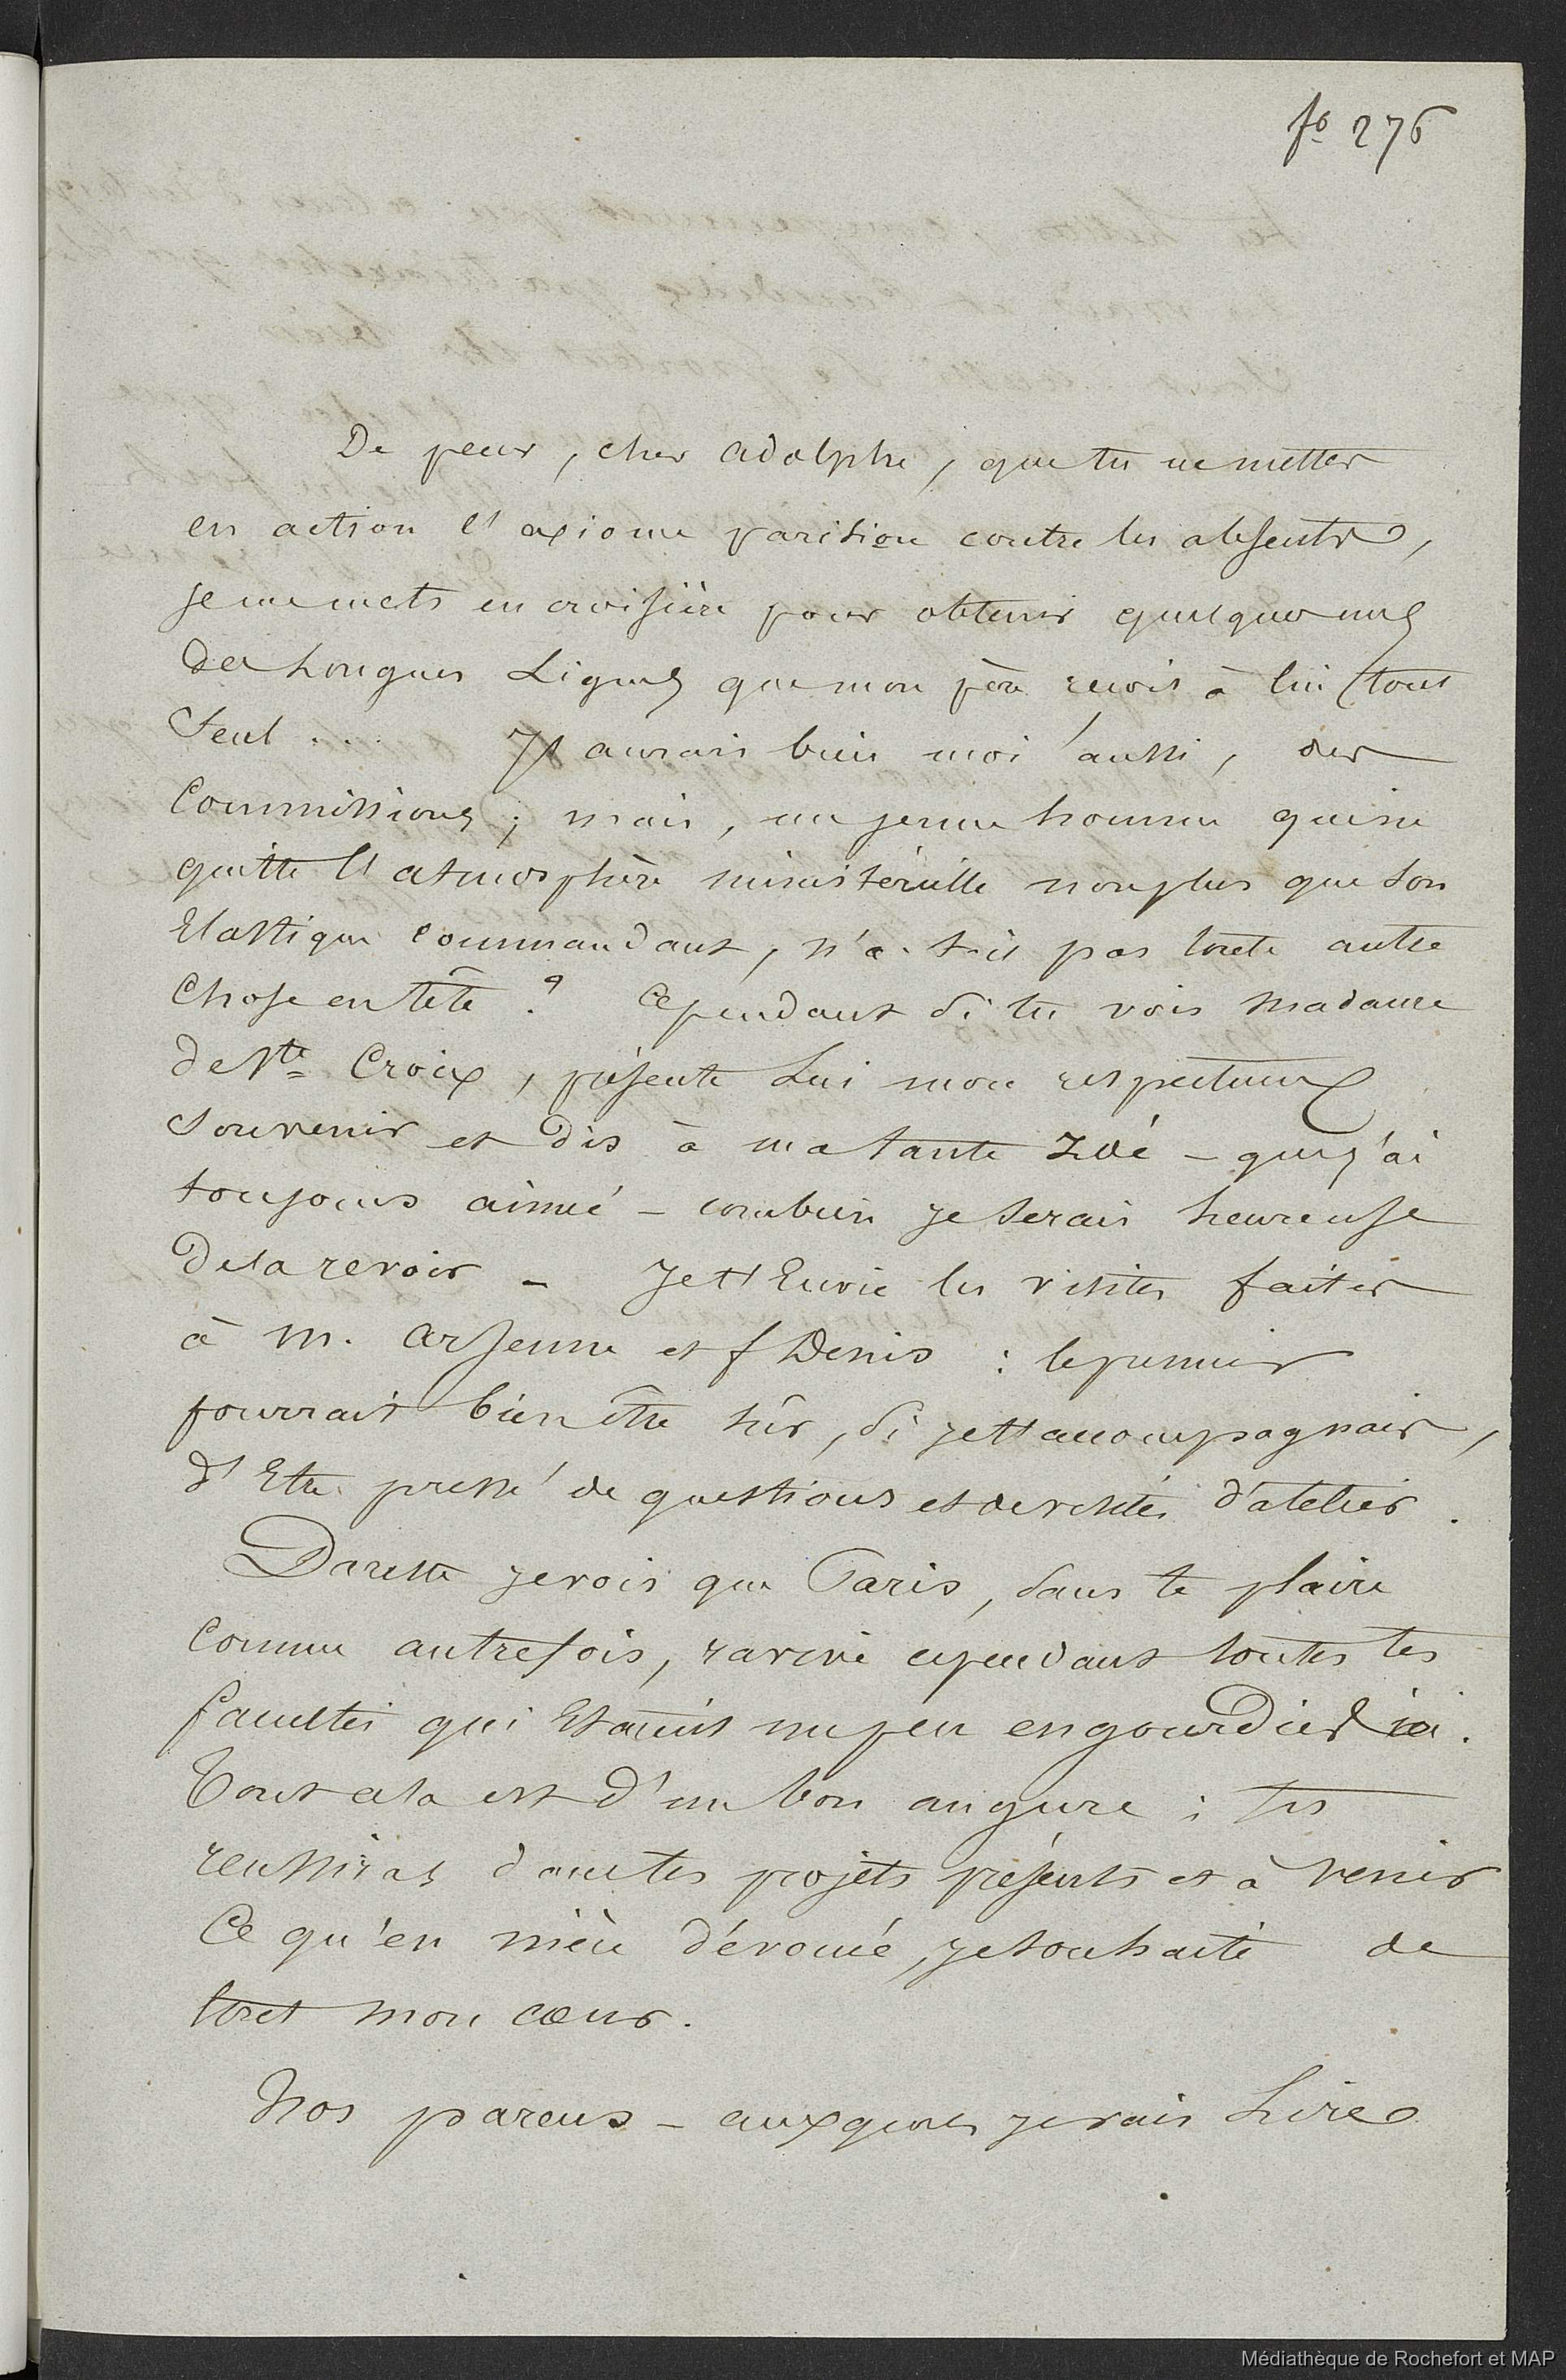 fo 276
De peur, cher adolphe, que tu ne mettes
en action l'axiome parisien contre les absents,
je me mets en croisière pour obtenir quelques unes
des Longues Lignes que mon père reçoit à lui tout
Seul ... J'aurais bien moi aussi, des
Commissions; mais, un jeune homme qui ne
quitte l'atmosphère ministérielle non plus que son
Elastique commandant, n'a-t-il pas toute autre
Chose en tête ? Cependant si tu vois Madame
de Ste Croix, présente Lui mon respectueux
Souvenir et dis à ma tante Zoé – que j'ai
toujours aimée – combien je serais heureuse
de la revoir – Je t'Envie les visites faites
à M. Arsenne et St Denis : le premier
pourrait bien être sûr, si je t'accompagnais,
d'Etre pressé de questions et de visites d'atelier.
Dureste je vois que Paris, sans te plaire
Comme autrefois, ravive cependant toutes tes
facultés qui Etaient un peu engourdies ici.
Tout cela est d'un bon augure ; tu
reussiras dans tes projets présents et à venir
Ce qu'en mère dévouée, je souhaite de
tout mon cœur.
Nos parens – auxquels je vais Lire
Médiathèque de Rochefort et MAP